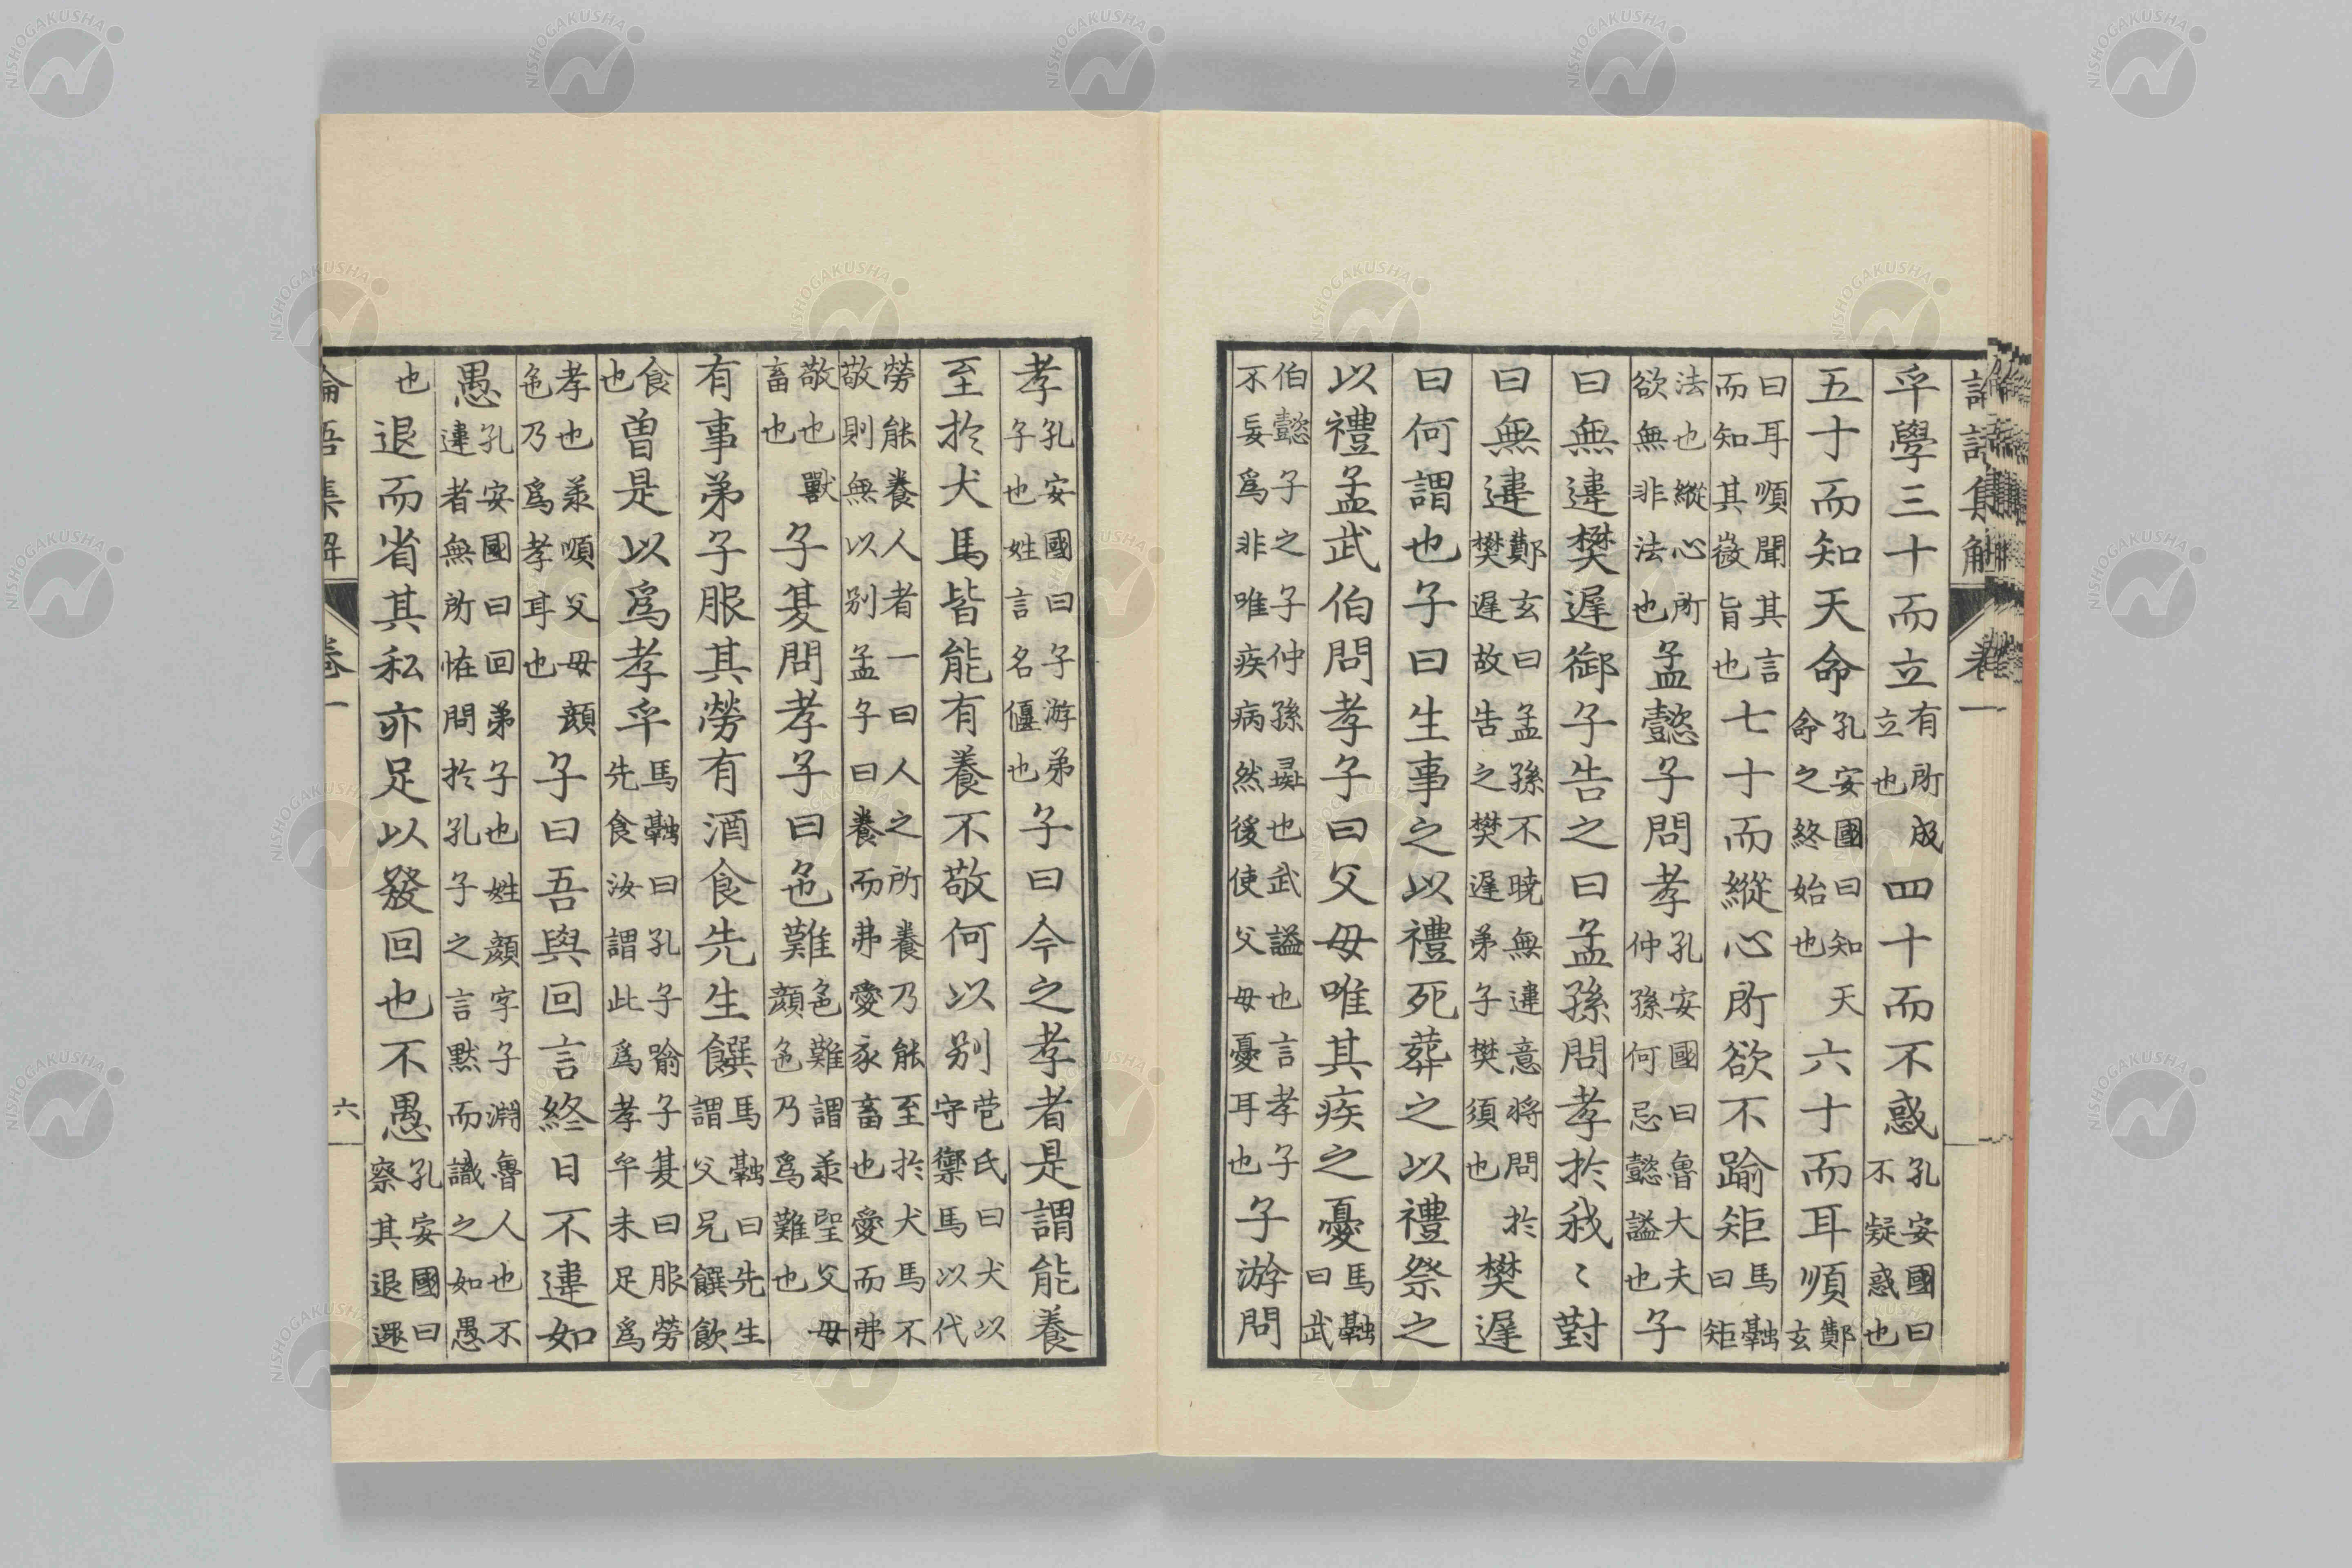 論語集解 卷一
乎學三十而立有所成立也四十而不惑孔安國曰不疑惑也
五十而知天命孔安國曰知天命之終始也六十而耳順鄭玄
曰耳順聞其言而知其微旨也七十而縱心所欲不踰矩馬融曰矩
法也縱心所欲無非法也孟懿子問孝孔安國曰魯大夫仲孫何忌懿謚也子
曰無違樊遲御子告之曰孟孫問孝於我〻對
曰無違鄭玄曰孟孫不曉無違意將問於樊遲故告之樊遲弟子樊須也樊遲
曰何謂也子曰生事之以禮死葬之以禮祭之
以禮孟武伯問孝子曰父母唯其疾之憂馬融曰武
伯懿子之子仲孫彘也武謚也言孝子不妄爲非唯疾病然後使父母憂耳也子游問
孝孔安國曰子游弟子也姓言名偃也子曰今之孝者是謂能養
至於犬馬皆能有養不敬何以別苞氏曰犬以守禦馬以代
勞能養人者一曰人之所養乃能至於犬馬不敬則無以別孟子曰養而弗愛豕畜也愛而弗
敬也獸畜也子夏問孝子曰色難色難謂承望父母顏色乃爲難也
有事弟子服其勞有酒食先生饌馬融曰先生謂父兄饌飲
食也曾是以爲孝乎馬融曰孔子喻子夏曰服勞先食汝謂此爲孝乎未足爲
孝也承順父母顏色乃爲孝耳也子曰吾與回言終日不違如
愚孔安國曰回弟子也姓顏字子淵魯人也不違者無所恠問於孔子之言默而識之如愚
也退而省其私亦足以發回也不愚孔安國曰察其退還
論語集解 卷一 六
NISHOGAKUSHA